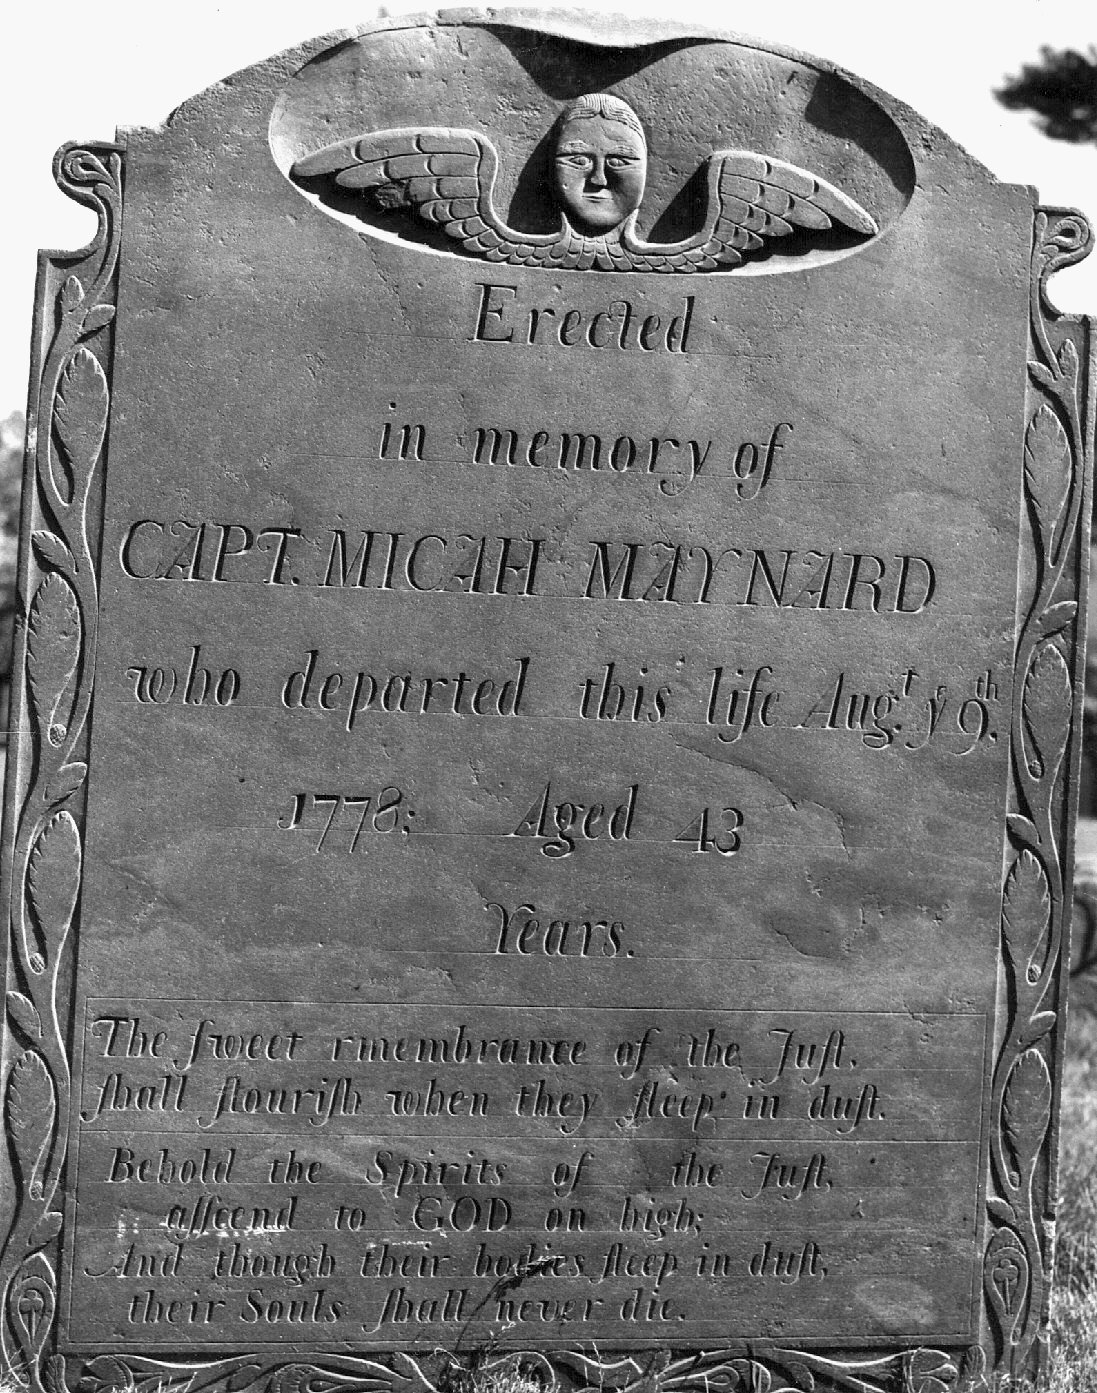 Erected
in memory of
CAPT. MICAH MAYNARD
who departed this life Augt. ye 9th.
1778; Aged 43
Years.
The ſweet remembrance of the Juſt,
ſhall flouriſh when they ſleep in duſt.
Behold the Spirits of the Juſt,
aſſcend to GOD on high;
And though their bodies ſleep in duſt,
their Souls ſhall never die.